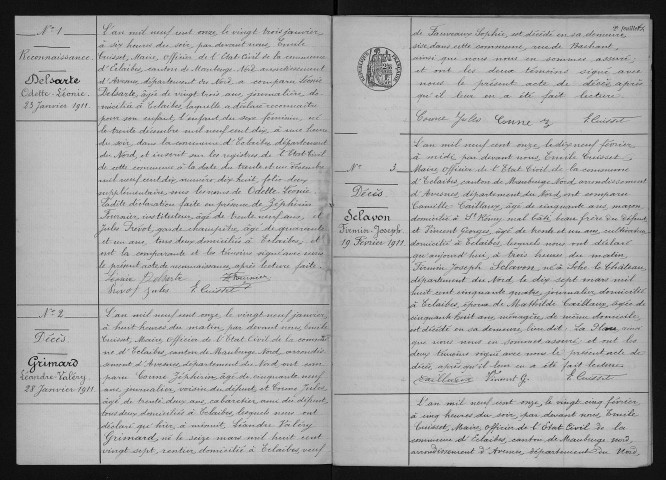 N° 1
Reconnaissance
Delsarte
Odette-Léonie
23 Janvier 1911.
L'an mil neuf cent onze, le vingt trois janvier
à six heures du soir, par devant nous, Emile
Cuisset, Maire, Officier de l'Etat Civil de la commune
d'Eclaibes, canton de Maubeuge Nord, arrondissement
d'Avesnes, département du Nord, a comparu Léonie
Delsarte, âgée de vingt trois ans, journalière, do-
miciliée à Eclaibes, laquelle a déclaré reconnaître
pour son enfant, l'enfant du sexe féminin, né
le trente décembre mil neuf cent dix, à onze heures
du soir dans la commune d'Eclaibes, département
du Nord, et inscrit sur les registres de l'Etat Civil
de cette commune à la date du trente et un décembre
mil neuf cent dix, numéro dix huit, folio deux
supplémentaire, sous les noms de Odette Léonie.
Ladite déclaration faite en présence de Zéphirin
Fournier, instituteur, âgé de trente neuf ans, et
Jules Prévot, garde champêtre, âgé de quarante
et un ans, tous deux domiciliés à Eclaibes, et
ont la comparante et les témoins signé avec nous
le présent acte de reconnaissance, après lecture faite.
Léonie Delsarte Fournier
Prévot Jules E Cuisset
N° 2
Décès
Grimard
Léandre-Valéry
28 Janvier 1911.
L'an mil neuf cent onze, le vingt neuf janvier,
à huit heures du matin, par devant nous, Emile
Cuisset, Maire, Officier de l'Etat Civil de la commu-
ne d'Eclaibes, canton de Maubeuge Nord, arrondis-
sement d'Avesnes, département du Nord, ont com-
paru Zéphirin, âgé de cinquante neuf
ans, journalier, voisin du défunt, et Jules,
âgé de trente deux ans, cabaretier, ami du défunt,
tous deux domiciliés à Eclaibes, lesquels nous ont
déclaré que hier, à minuit, Léandre Valéry
Grimard, né le seize mars mil huit cent
vingt sept, rentier, domicilié à Eclaibes, veuf
2e feuillet
de Sophie, est décédé en sa demeure
sise dans cette commune, rue de
ainsi que nous nous en sommes assuré,
et ont les deux témoins signé avec
nous le présent acte de décès après
qu'il leur en a été fait lecture.
Jules E Cuisset
N° 3
Décès
Sclavon
Firmin-Joseph
19 Février 1911.
L'an mil neuf cent onze, le dix neuf février
à midi, par devant nous Emile Cuisset,
Maire, officier de l'Etat Civil de la commune
d'Eclaibes, canton de Maubeuge Nord, arrondissement
d'Avesnes, département du Nord, ont comparu
Camille Cailleaux, âgé de cinquante ans, maçon
domicilié à St Rémy mal bâti, beau frère du défunt,
et Vincent Georges, âgé de trente et un ans, cultivateur
domicilié à Eclaibes, lesquels nous ont déclaré
qu'aujourd'hui, à trois heures du matin,
Firmin Joseph Sclavon, né à Solre le Château,
département du Nord, le dix sept mars mil
huit cent cinquante quatre, journalier, domicilié
à Eclaibes, époux de Mathilde Cailleaux, âgée de
cinquante huit ans, ménagère, de même domicile,
est décédé en sa demeure, lieu dit: La ainsi
que nous nous en sommes assuré, et ont les
deux témoins signé avec nous le présent acte de
décès, après qu'il leur en a été fait lecture
Cailleaux Vincent G. E Cuisset
L'an mil neuf cent onze, le vingt cinq février
à cinq heures du soir, par devant nous Emile
Cuisset, Maire, Officier de l'Etat Civil de la
commune d'Eclaibes, canton de Maubeuge Nord,
arrondissement d'Avesnes, département du Nord,